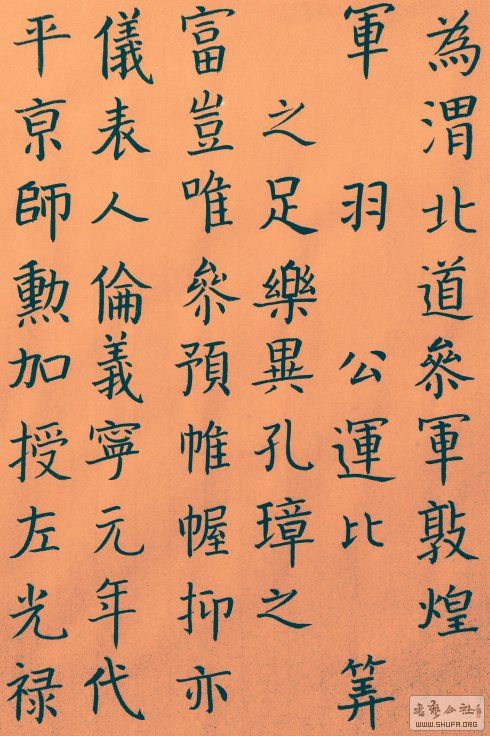 為渭北道叅軍敦煌
軍 羽 公運比 筭
之足樂異孔璋之
富豈唯叅預帷幄抑亦
儀表人倫義寧元年代
平亰師勳加授左光禄
WWW.SHUFA.ORG